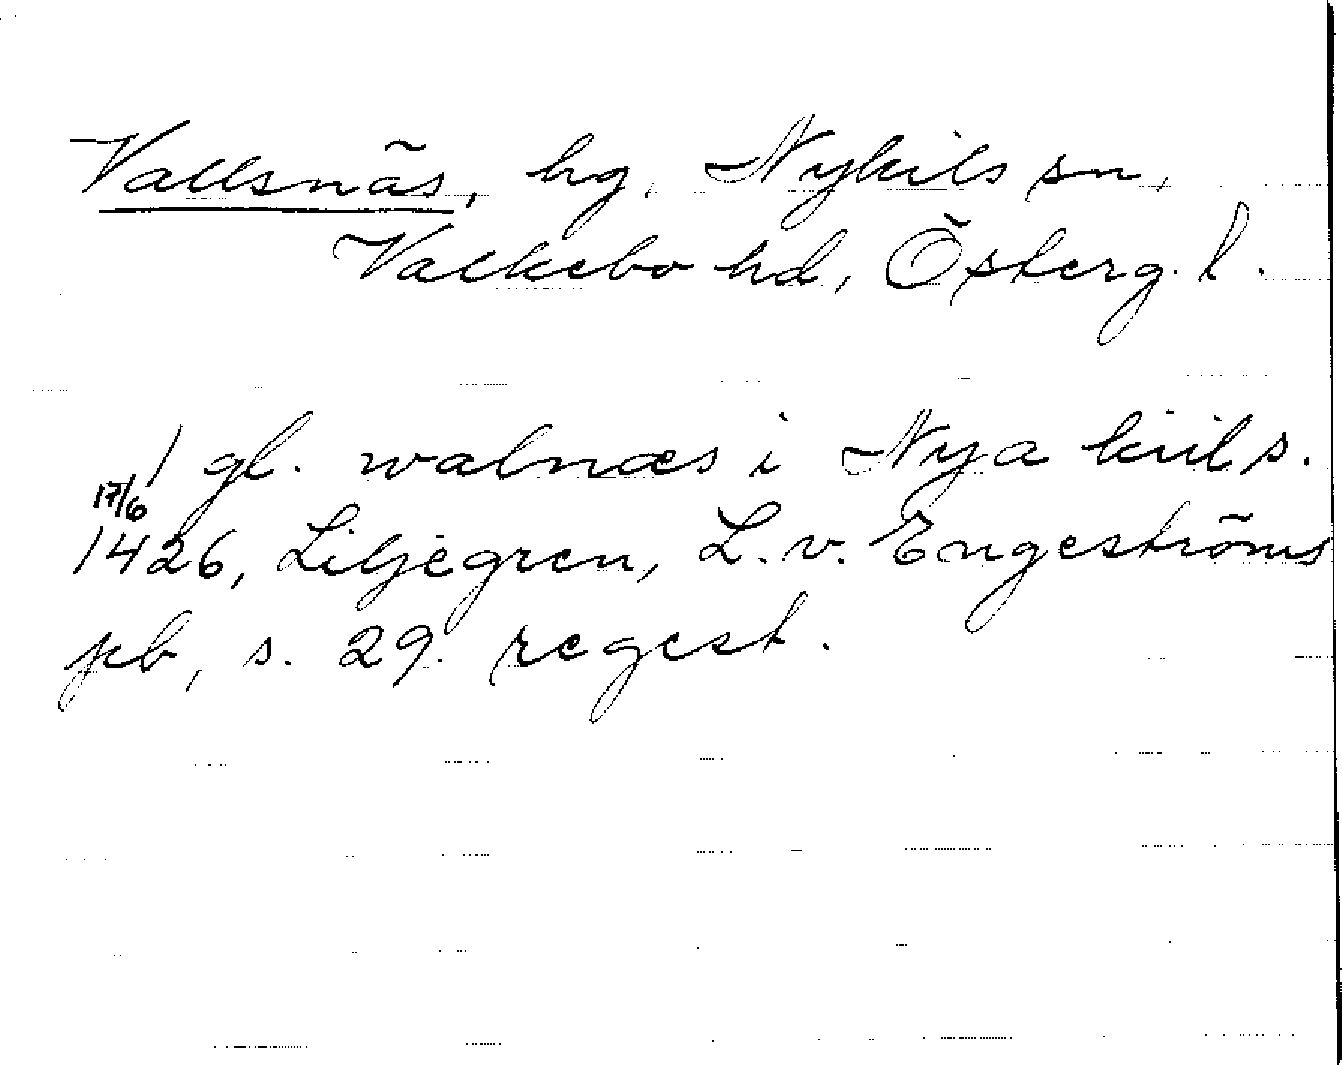 Vallsnäs, hg, Nykils sn,
Valkebo hd, Österg. l.
1 gl. walnæs i Nya kiils.
17/6
1426, Liljegren, L. v. Engeströms
pb, s. 29. regest.